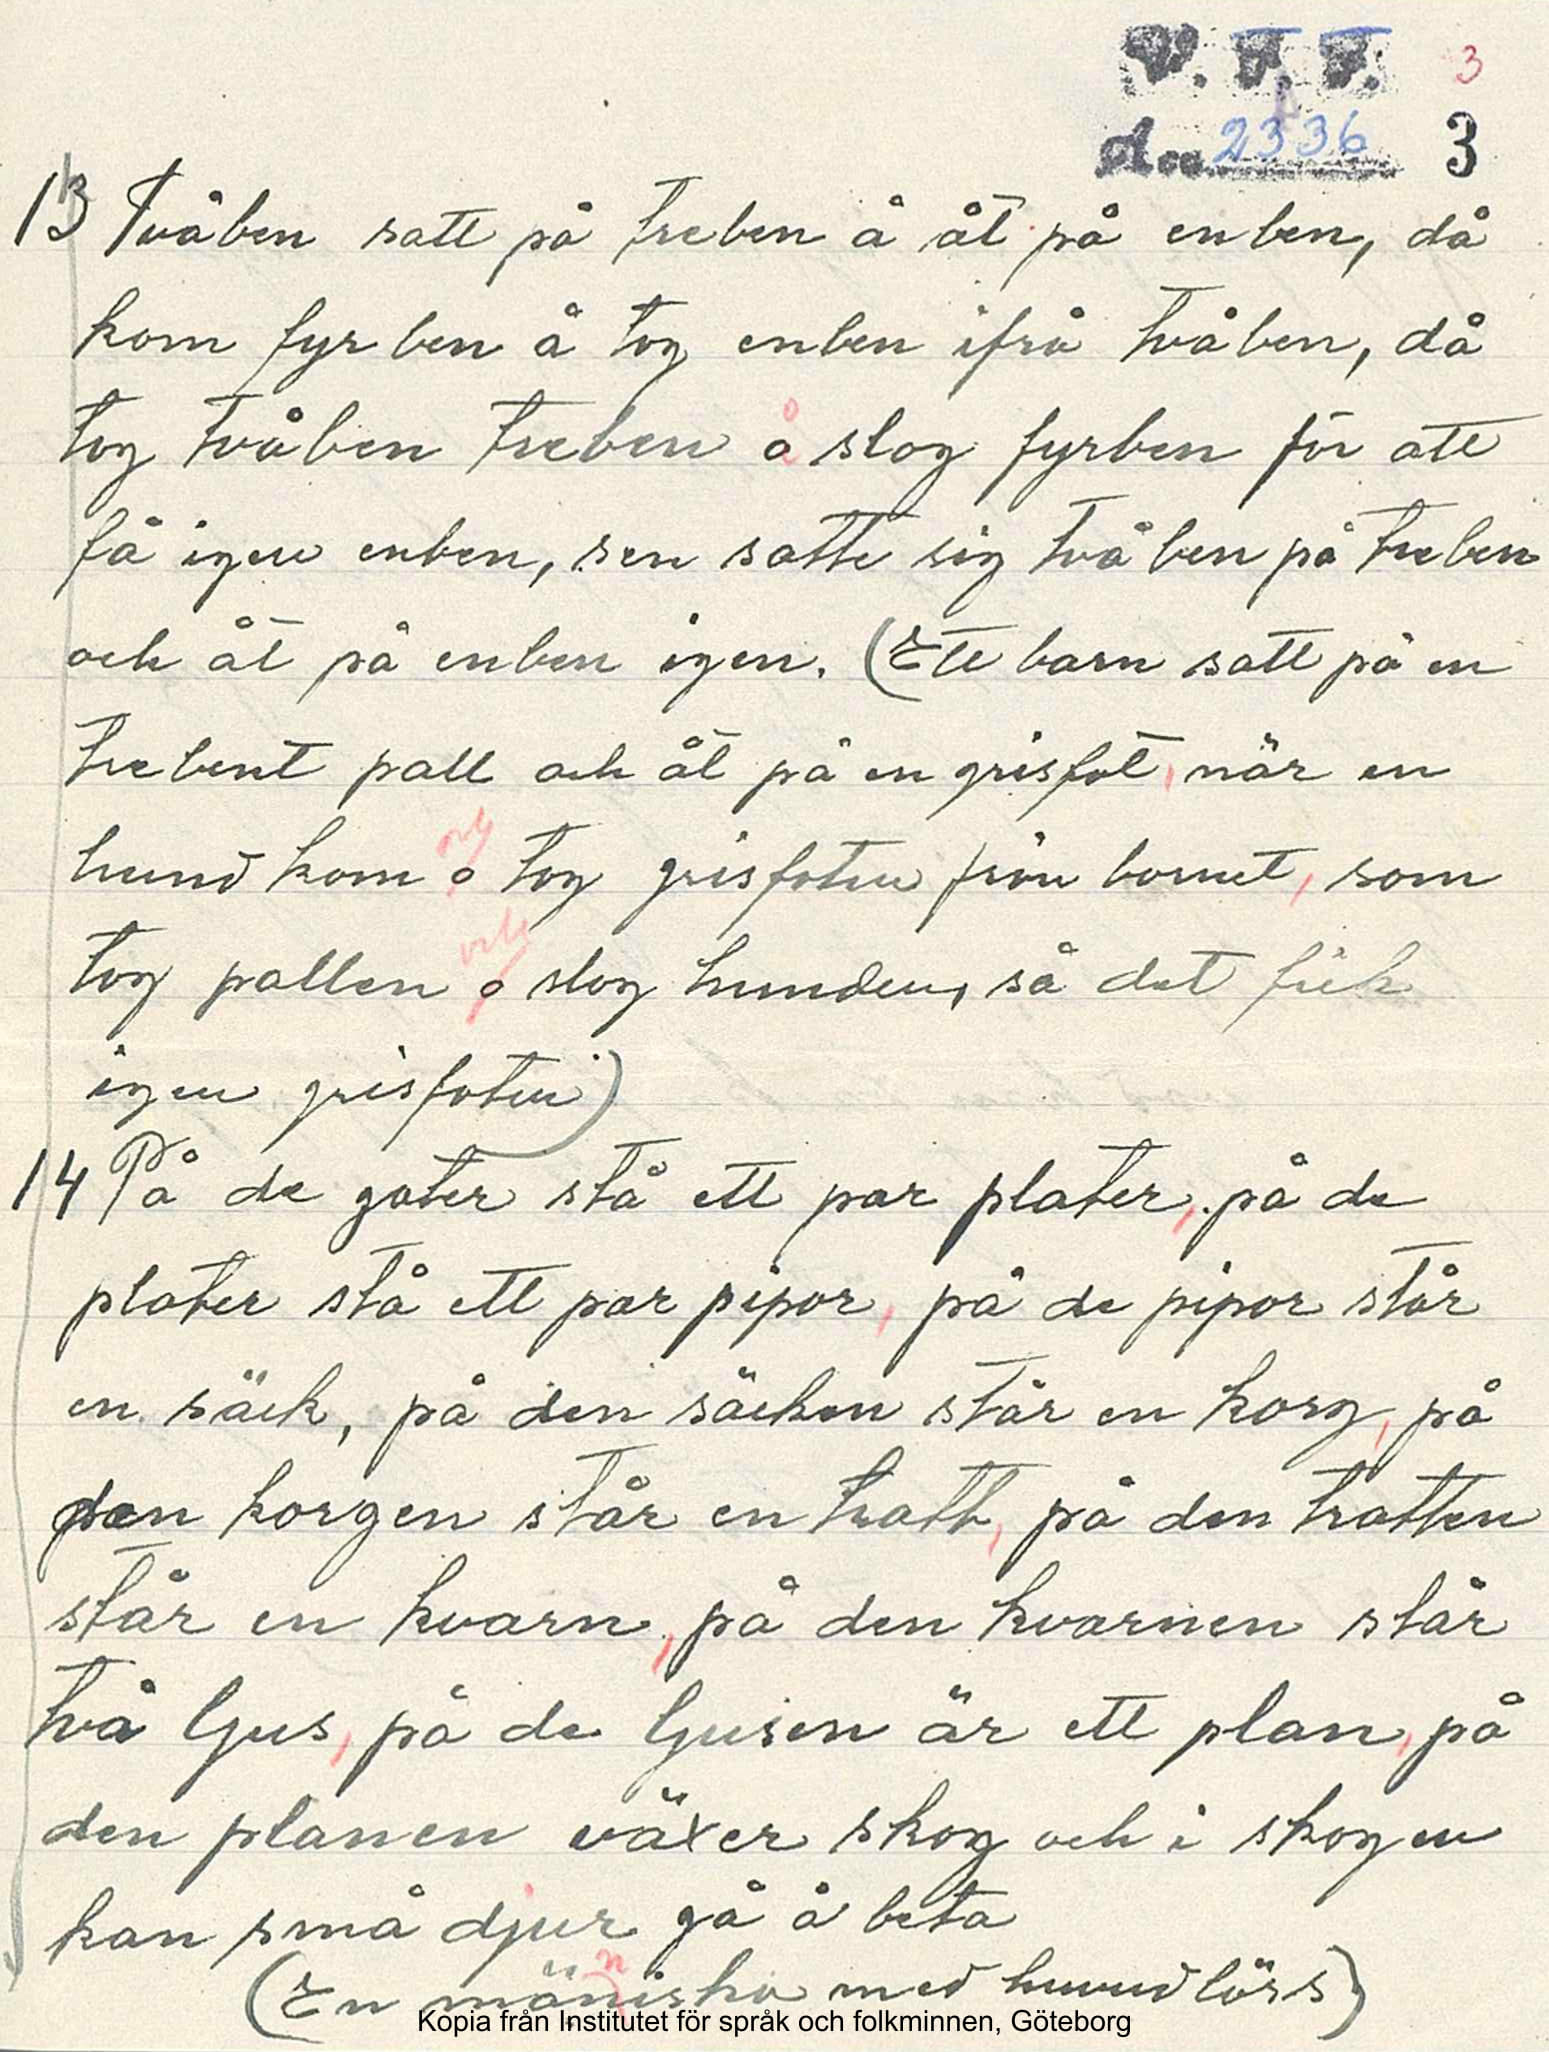 V. F. F. 3
Acc. 2336 3
13 Tvåben satt på treben å åt på enben, då
kom fyrben å tog enben ifrå tvåben, då
tog tvåben treben å slog fyrben för att
få igen enben, sen satte sig tvåben på treben
och åt på enben igen. (Ett barn satt på en
trebent pall och åt på en grisfot, när en
hund kom och tog grisfoten från barnet, som
tog pallen och slog hunden, så det fick
igen grisfoten)
14 På de gater stå ett par plater, på de
plater stå ett par pipor, på de pipor står
en säck, på den säcken står en korg, på
den korgen står en tratt, på den tratten
står en kvarn, på den kvarnen står
två ljus, på de ljusen är ett plan, på
den planen växer skog och i skogen
kan små djur gå å beta
(En människa med huvudlöss)
Kopia från Institutet för språk och folkminnen, Göteborg